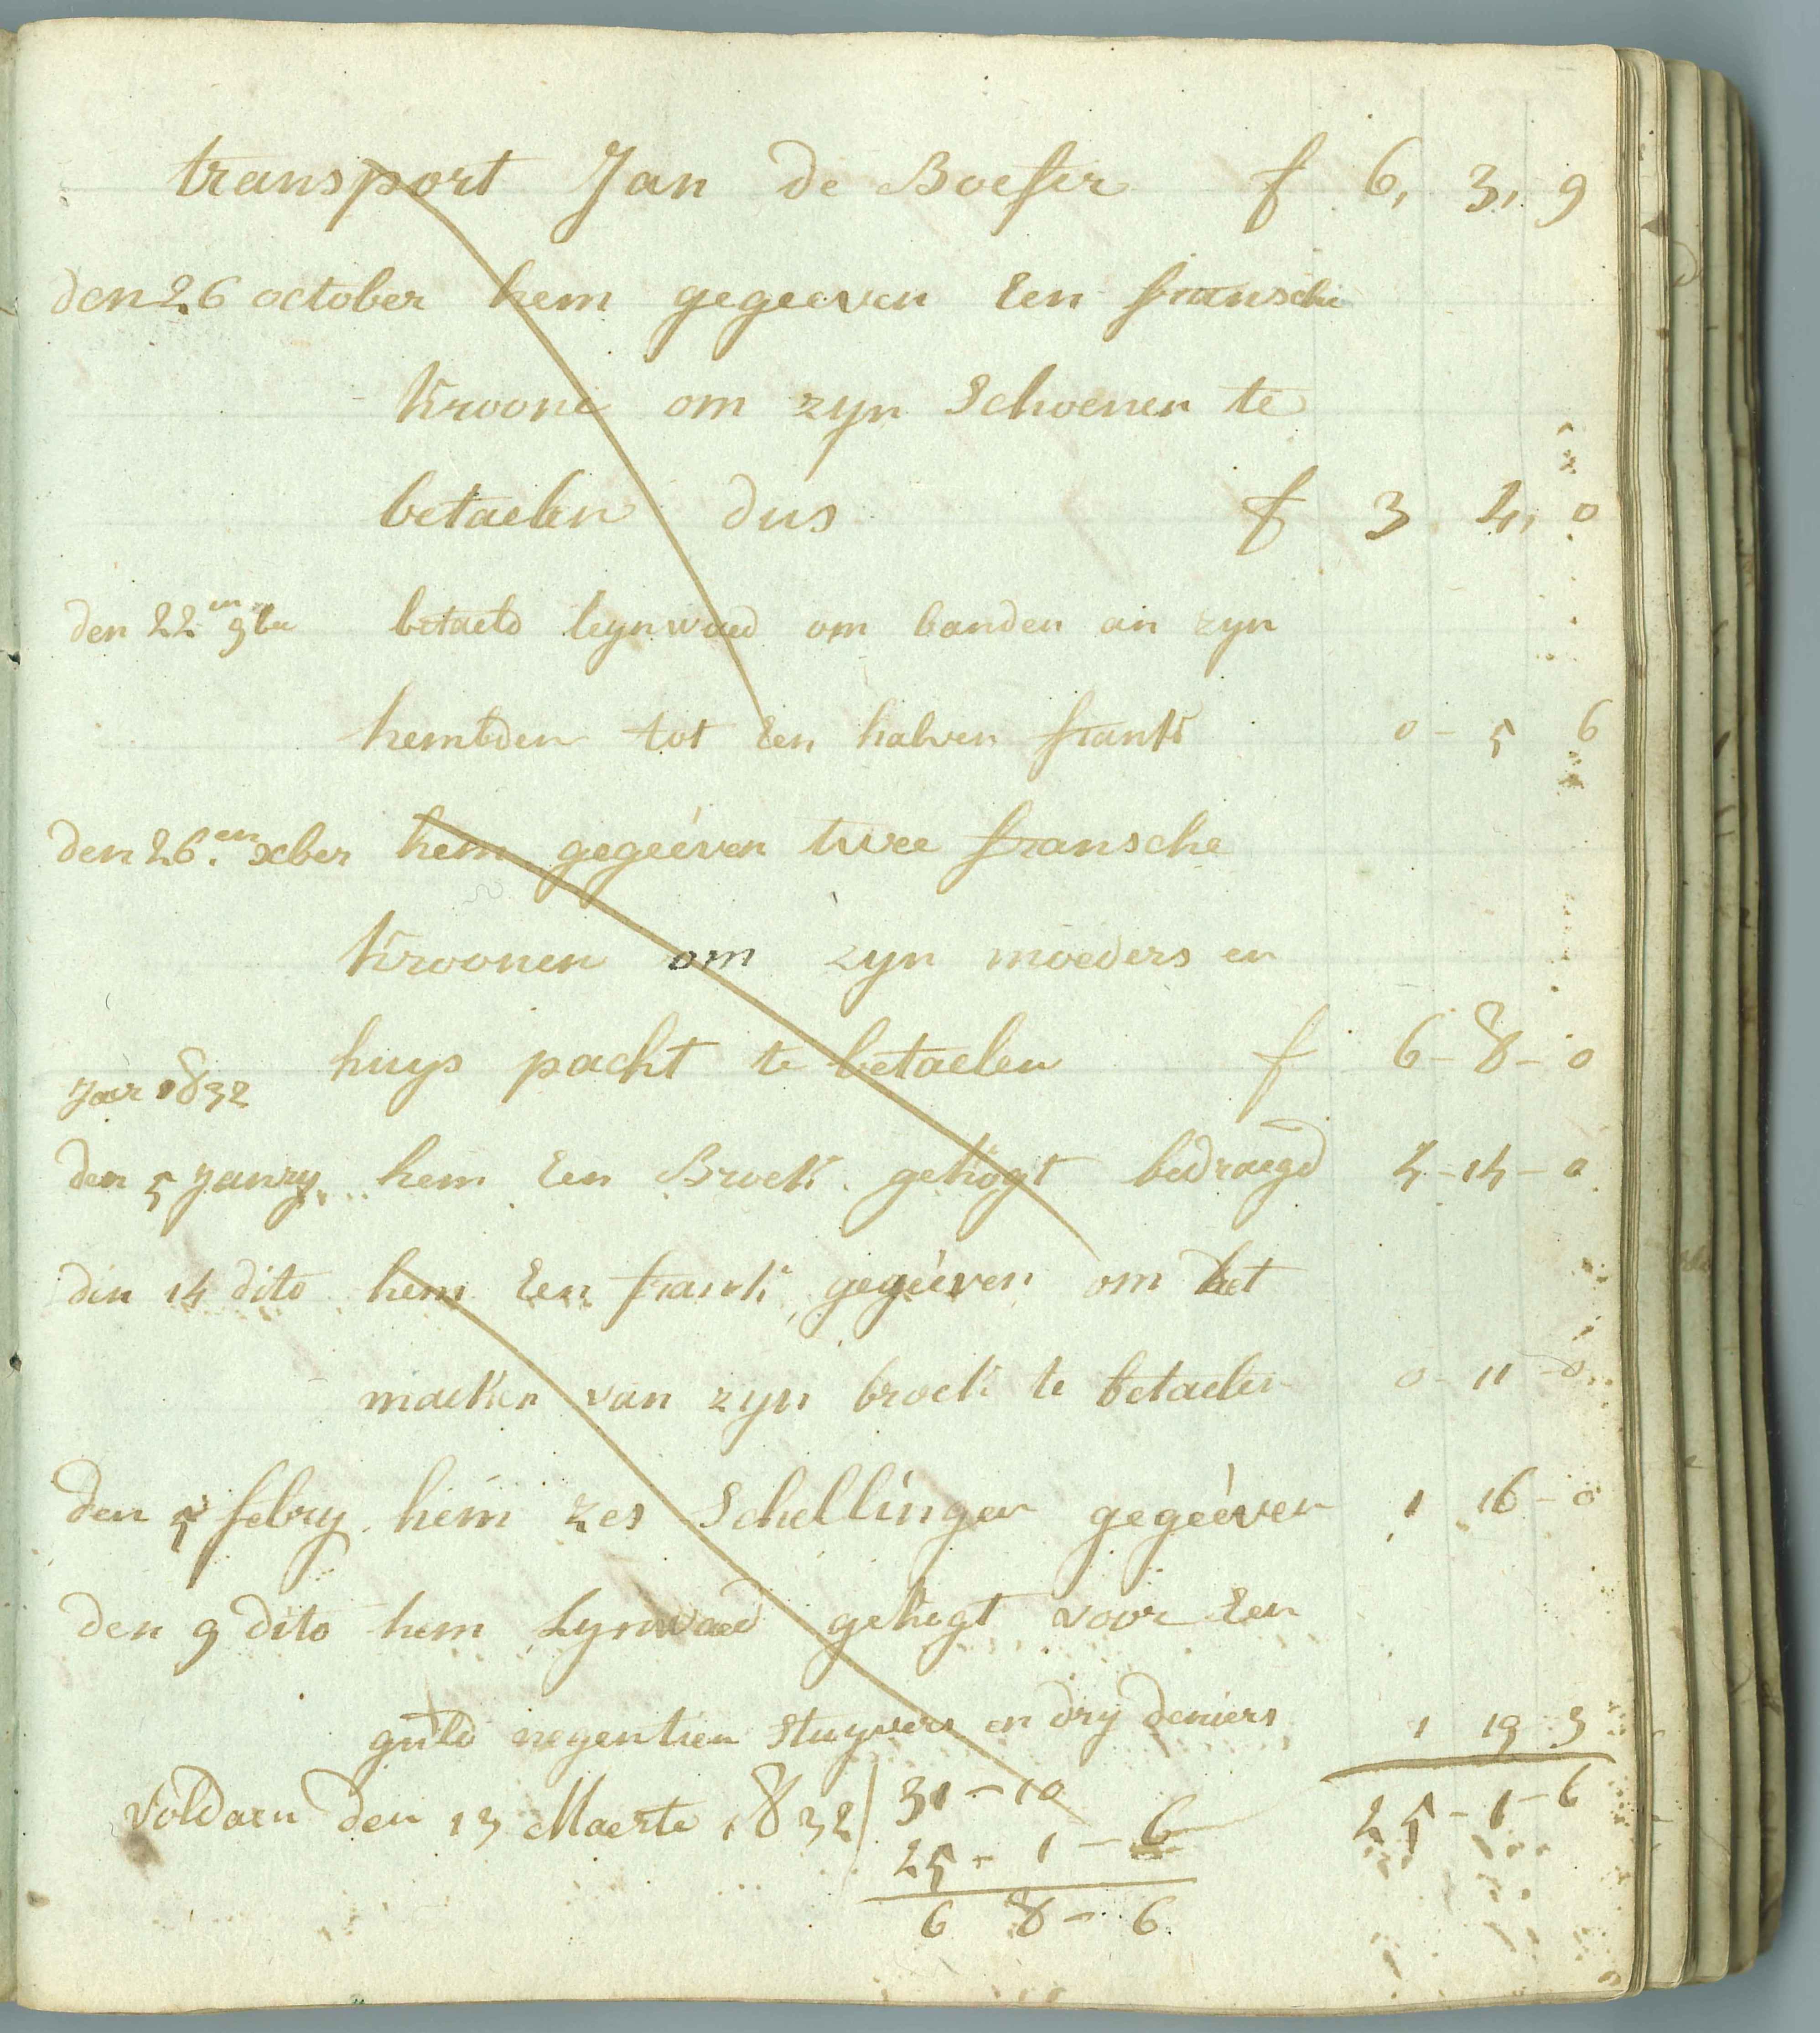 transport Jan de Boeser f 6, 3, 9
den 26 october hem gegeeven Een fransche
Kroone om zyn Schoenen te
betaelen dus f 3 4, 0
den 22en 9be betaeld leynwaed om banden an zyn
hembden tot Een halven frank 0 - 5 6
den 26.en xber hem gegeéven twee fransche
Kroonen om zyn moeders en
huys pacht te betaelen f 6 - 8 - 0
Jaer 1832
den 5 Janry hem Een Broek gekogt bedraegd 4 - 14 - 0
den 14 dito hem Een frank gegeéven om het
maeken van zyn broek te betaelen 0 - 11 - 0
den 5 febry hem zes Schellingen gegeéven 1 16 - 0
den 9 dito hem Lynwaed gekogt voor Een
guld negentien Stuyvers en dry deniers 1 19 3
Voldaen den 13 Maerte 1832 31 - 10 25 - 1 - 6
25 - 1 - 6
6 8 - 6